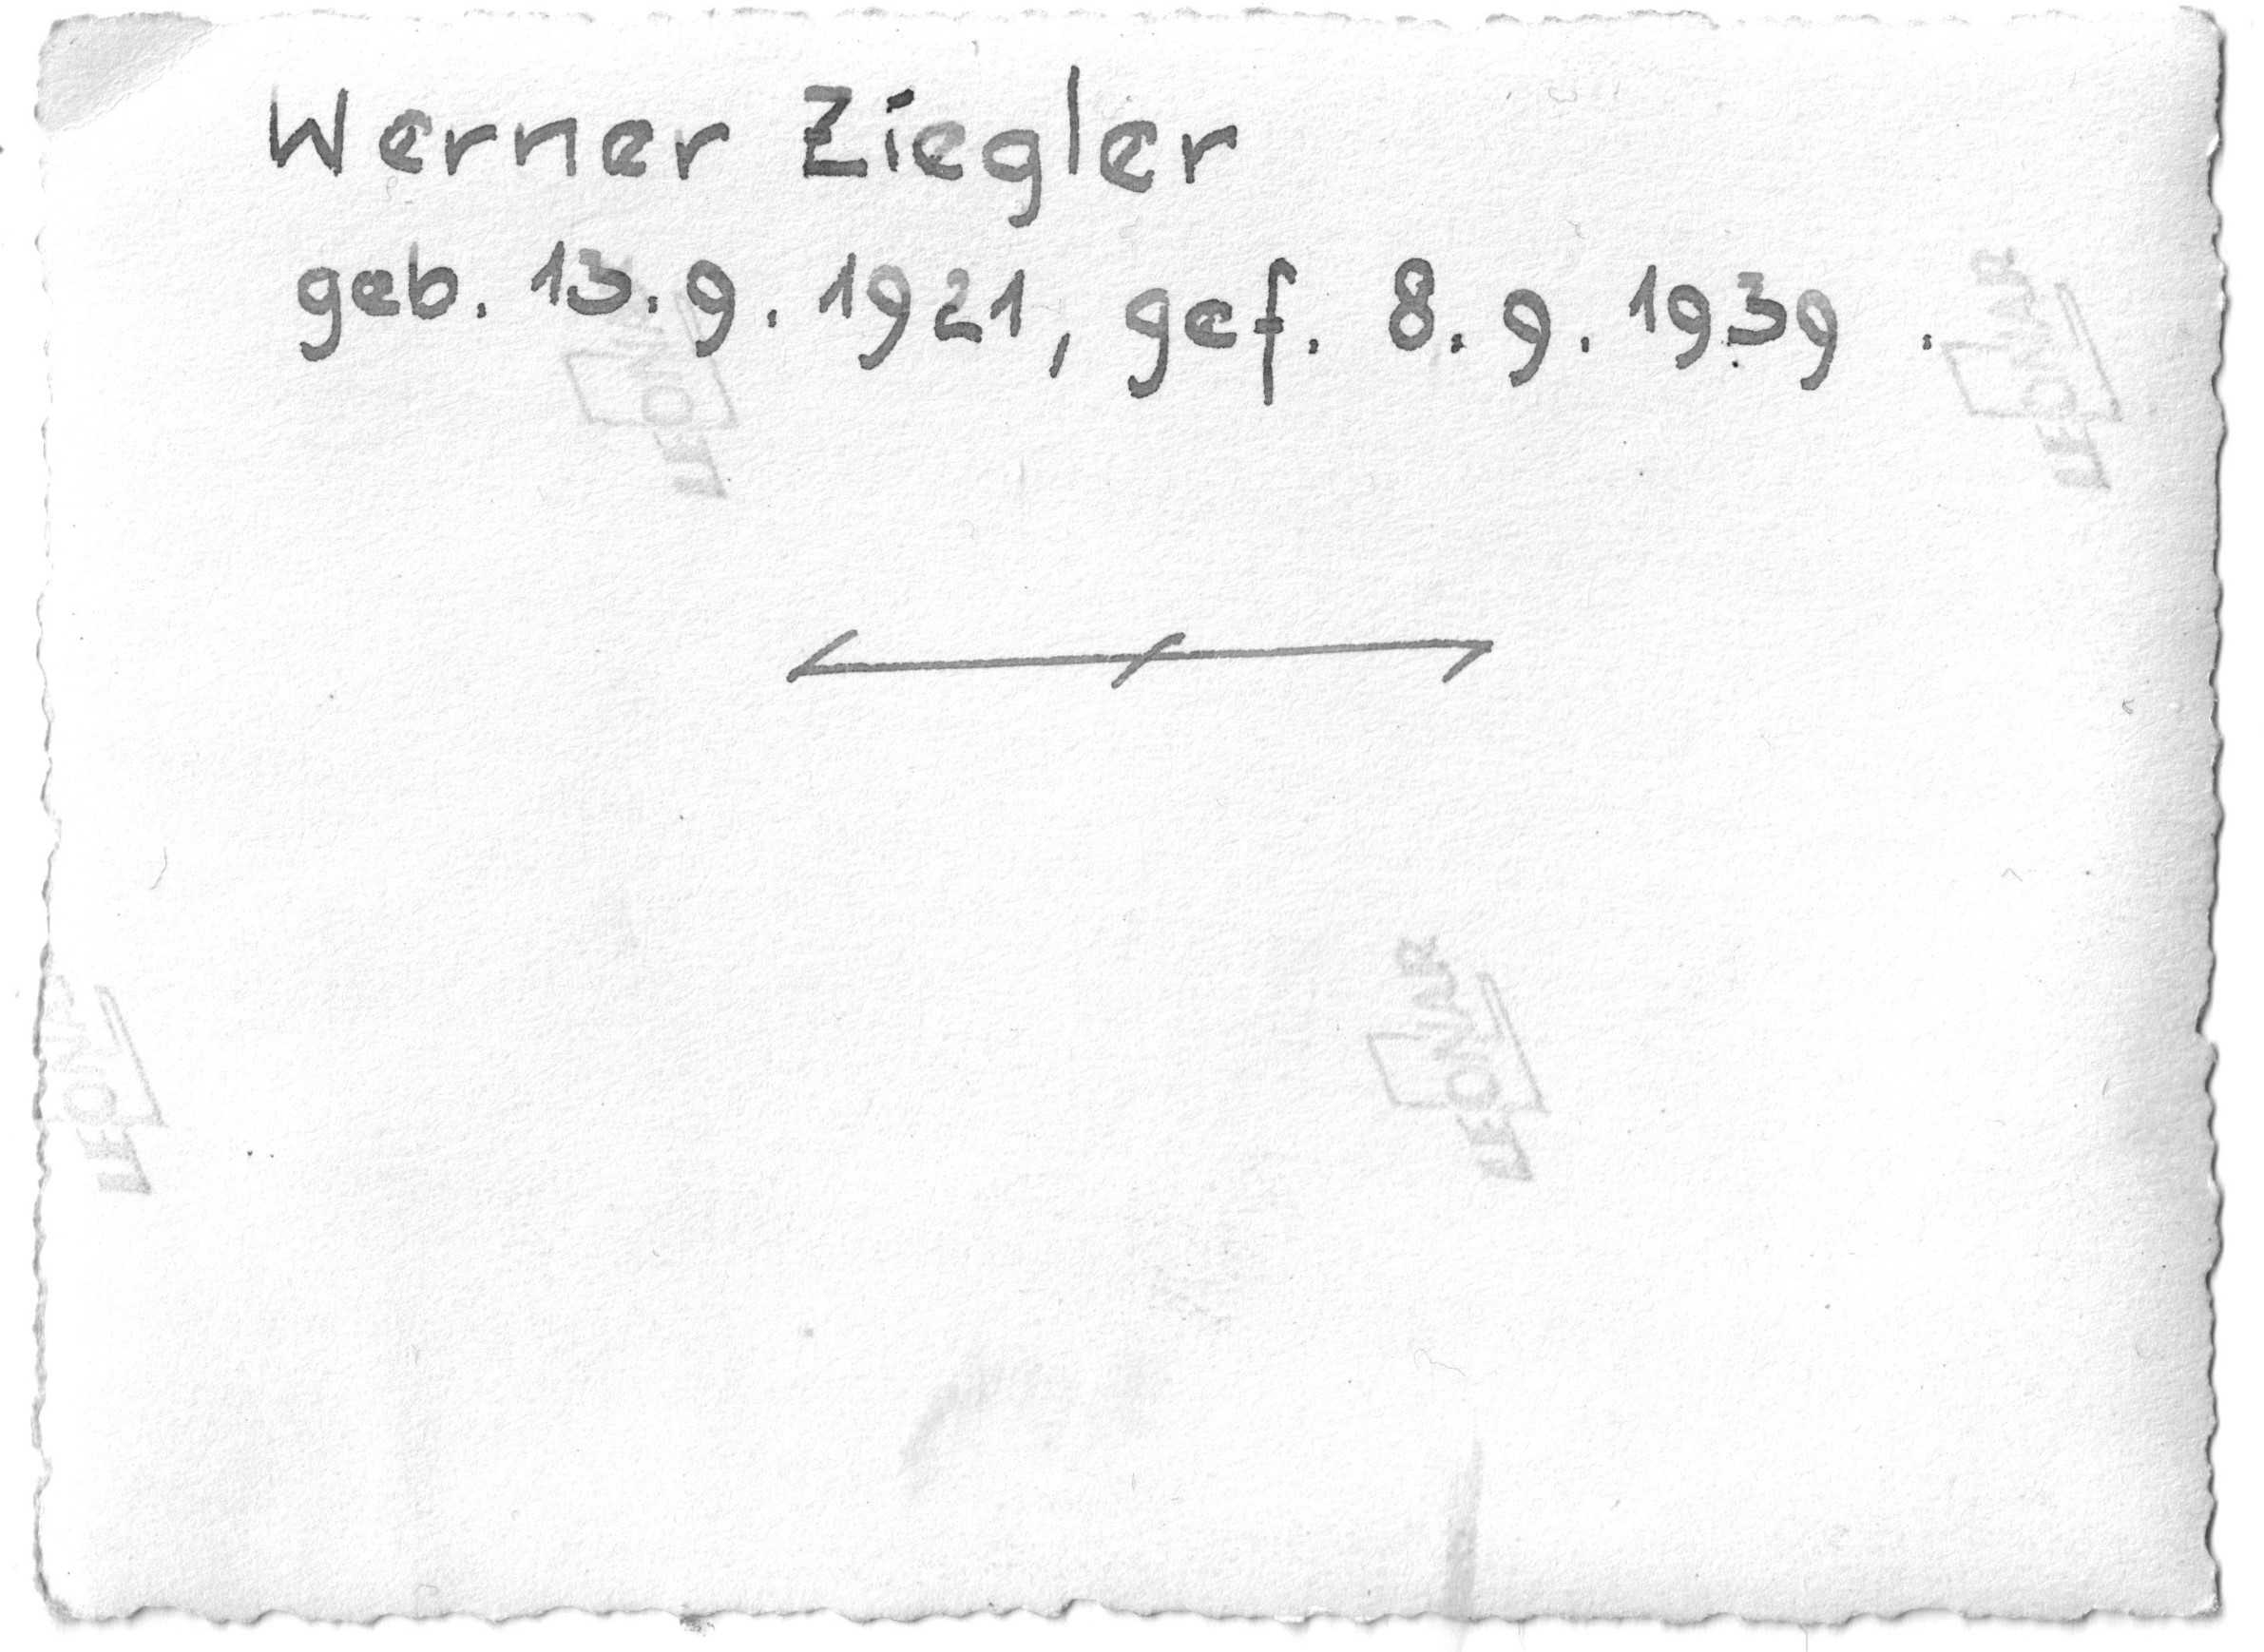 Werner Ziegler
geb. 13. 9. 1921, gef. 8. 9. 1939 .
LEONAR
LEONAR
LEONAR
LEONAR